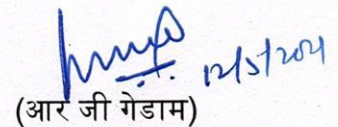 12/5/2021
(आर जी गेडाम)